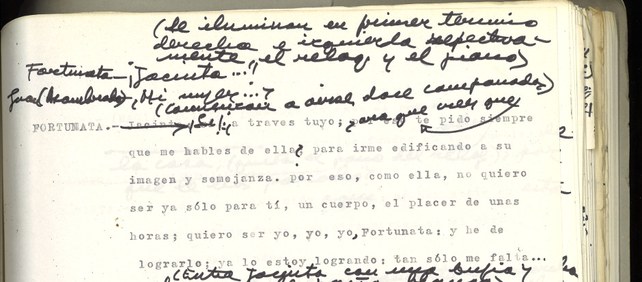 (Se iluminan en primer termino
derecha e izquierda respectiva-
mente, el reloj y el piano)
Fortunata - ¡Jacinta...!
Juan (Asombrado) ¿Mi mujer...?
(Comienzan a sonar doce campanadas)
¿para que veas que
FORTUNATA.- Jacinta ¡Sí! a traves tuyo; por eso te pido siempre
que me hables de ella? para irme edificando a su
imagen y semejanza. por eso, como ella, no quiero
ser ya sólo para tí, un cuerpo, el placer de unas
horas; quiero ser yo, yo, yo, Fortunata: y he de
lograrlo; ya lo estoy logrando: tan sólo me falta...
(Entra Jacinta con una bujia y